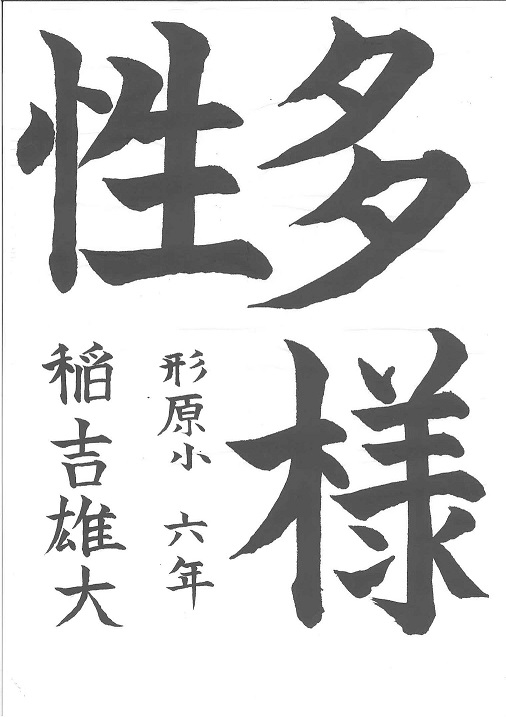 多様
性
形原小 六年
稲吉雄大